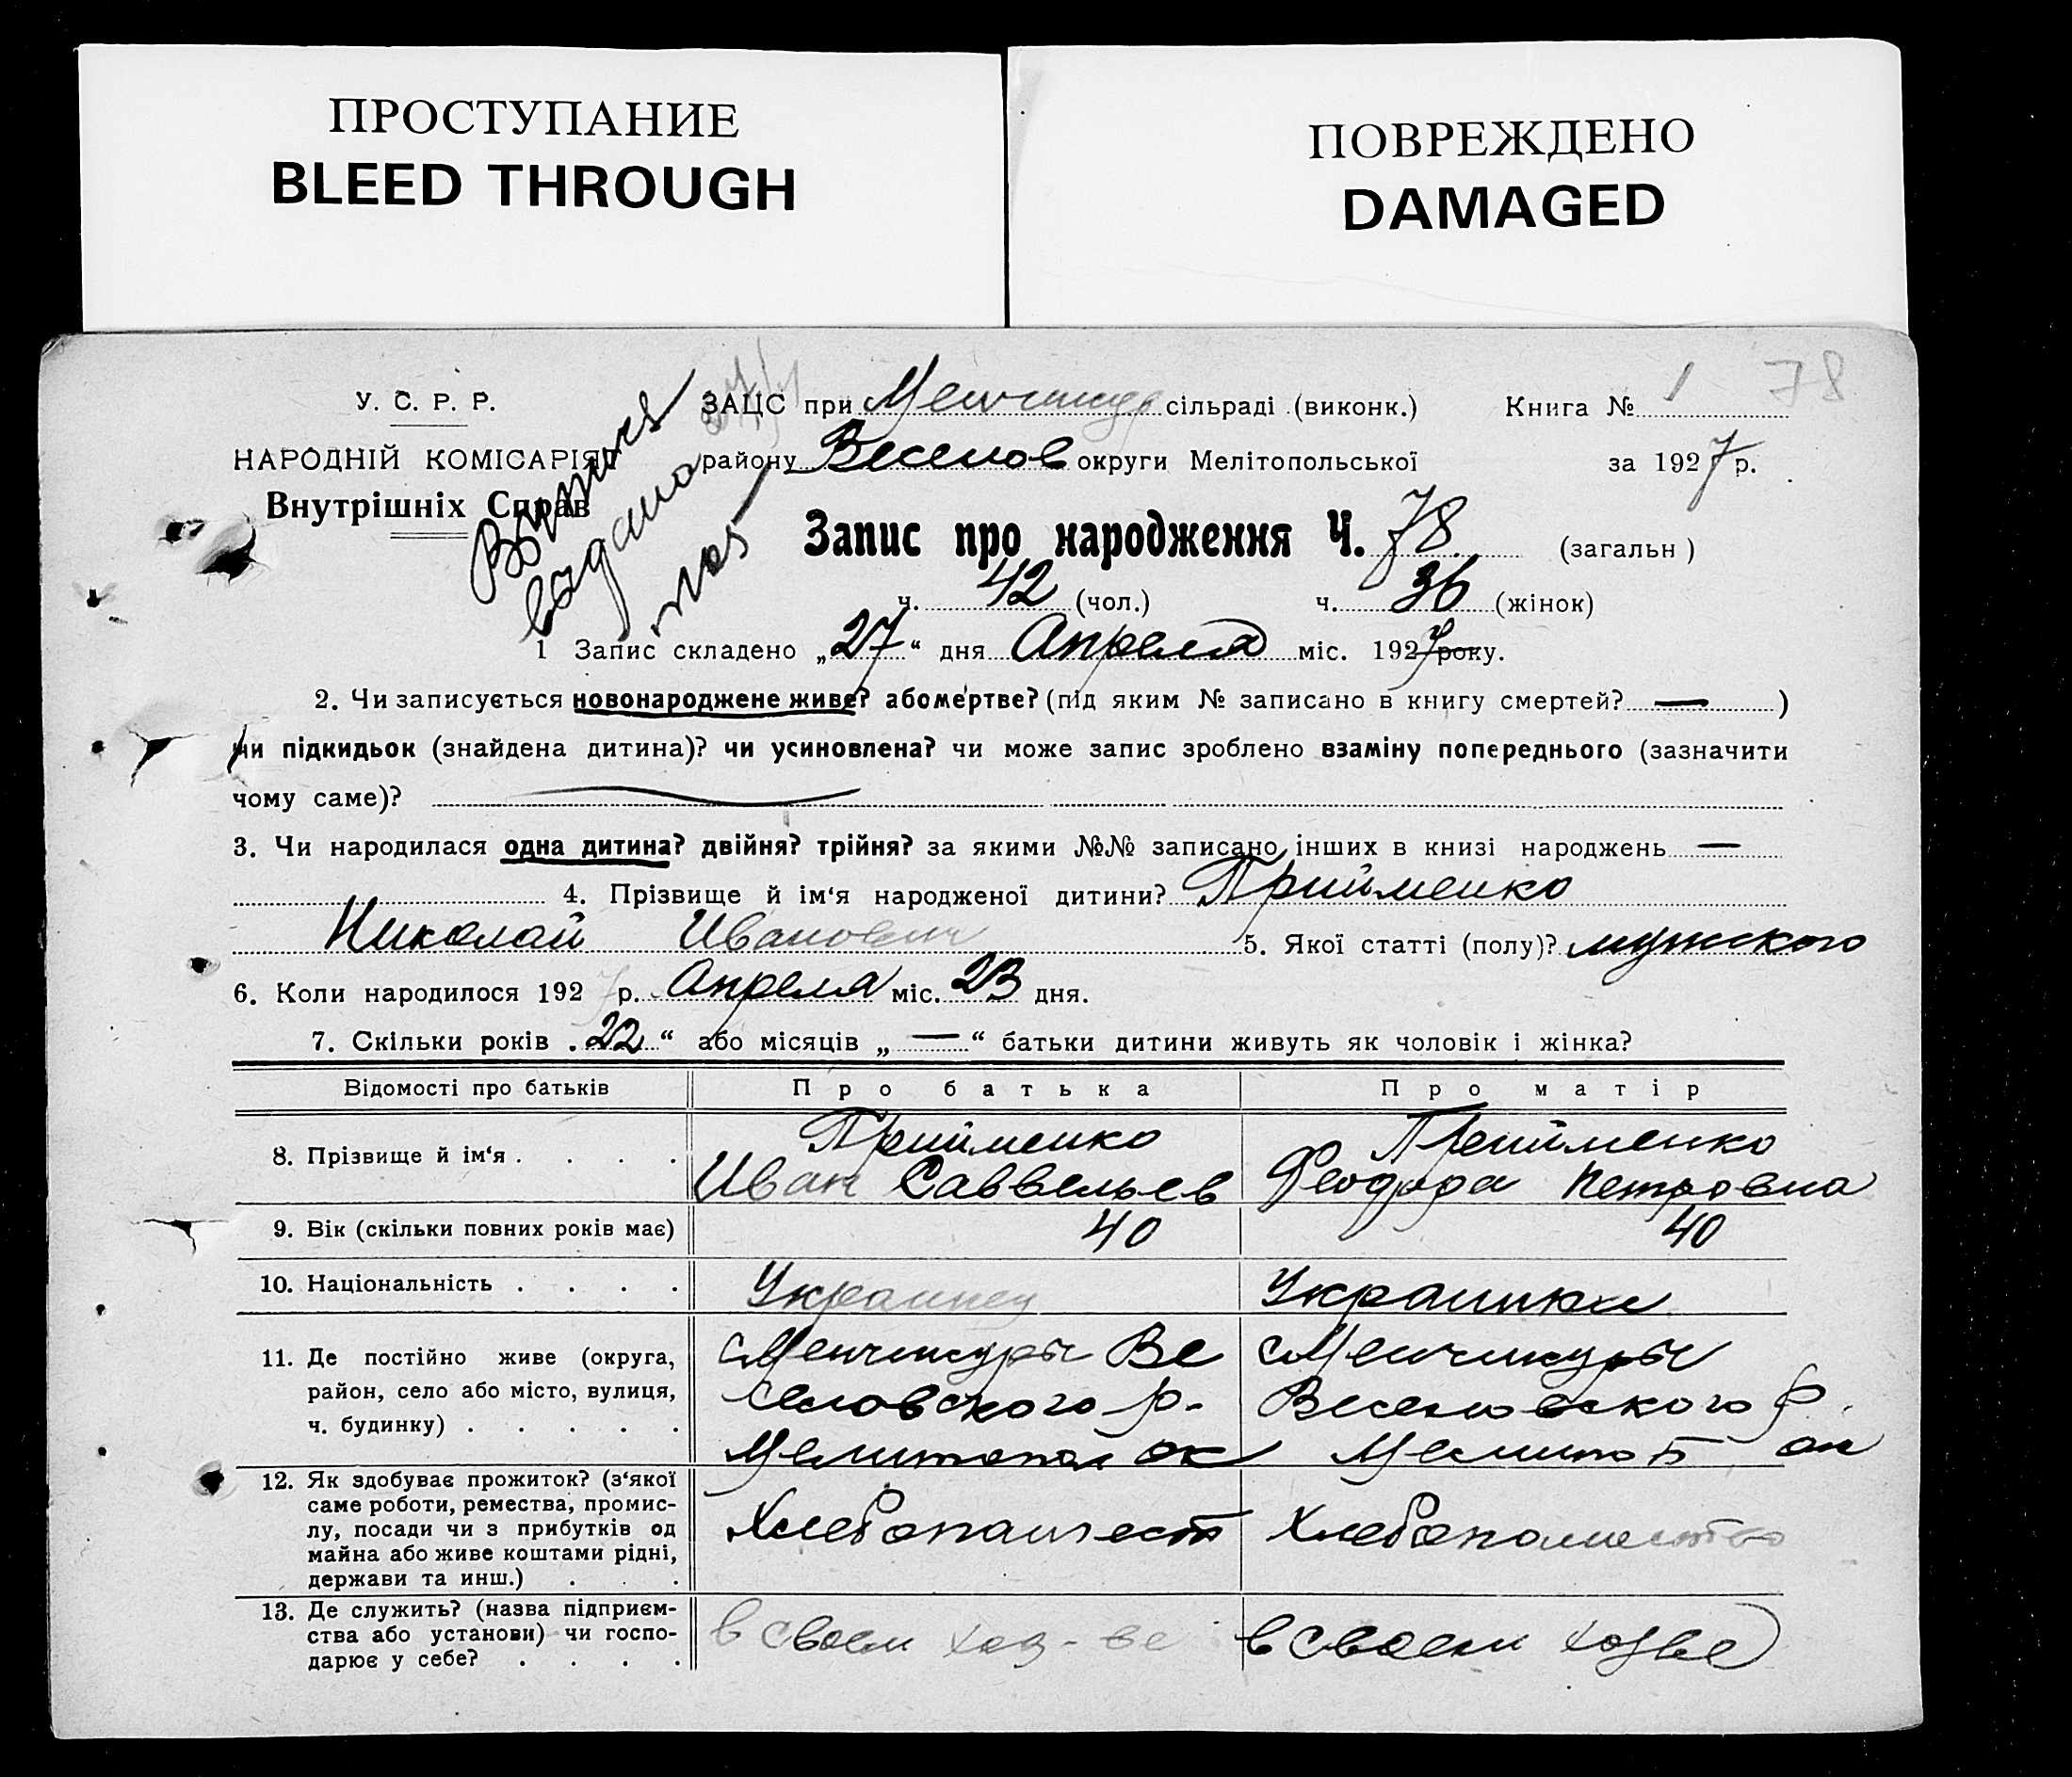 ПРОСТУПАНИЕ
BLEED THROUGH
ПОВРЕЖДЕНО
DAMAGED
1 78
У. С. Р. Р.
НАРОДНІЙ КОМІСАРІЯТ
Внутрішніх Справ
Выпись
выдана
ЗАЦС при Менчикур сільраді (виконк.) Книга №
району Веселов округи Мелітопольської за 1927 р.
Запис про народження Ч. 78 (загальн)
ч. 42 (чол.) ч. 36 (жінок)
1 Запис складено „27“ дня Апреля міс. 1927 року.
2. Чи записується новонароджене живе? або мертве? (під яким № записано в книгу смертей? — )
чи підкидьок (знайдена дитина)? чи усиновлена? чи може запис зроблено взаміну попереднього (зазначити
чому саме)?
3. Чи народилася одна дитина? двійня? трійня? за якими №№ записано інших в книзі народжень —
4. Прізвище й ім‘я народженої дитини? Прийменко
Николай Иванович 5. Якої статті (полу)? мужского
6. Коли народилося 1927 р. Апреля міс. 23 дня.
7. Скільки років „22“ або місяців „—“ батьки дитини живуть як чоловік і жінка?
Відомості про батьків Про батька Про матір
8. Прізвище й ім‘я . . . . Прийменко Прийменко
Иван Саввельев Феодора Петровна
9. Вік (скільки повних років має) 40 40
10. Національність . . . . Украинец Украинка
11. Де постійно живе (округа, с Менчикуры Ве с Менчикуры
район, село або місто, вулиця, селовского р. Веселовского р.
ч. будинку) . . . . . Мелитопол ок Мелитоп ок
12. Як здобуває прожиток? (з‘якої
саме роботи, ремества, промис-
лу, посади чи з прибутків од Хлебопашест Хлебопашество
майна або живе коштами рідні,
держави та инш.) . . .
13. Де служить? (назва підприєм-
ства або установи) чи госпо- в своем хоз-ве в своем хозве
дарює у себе? . . . .